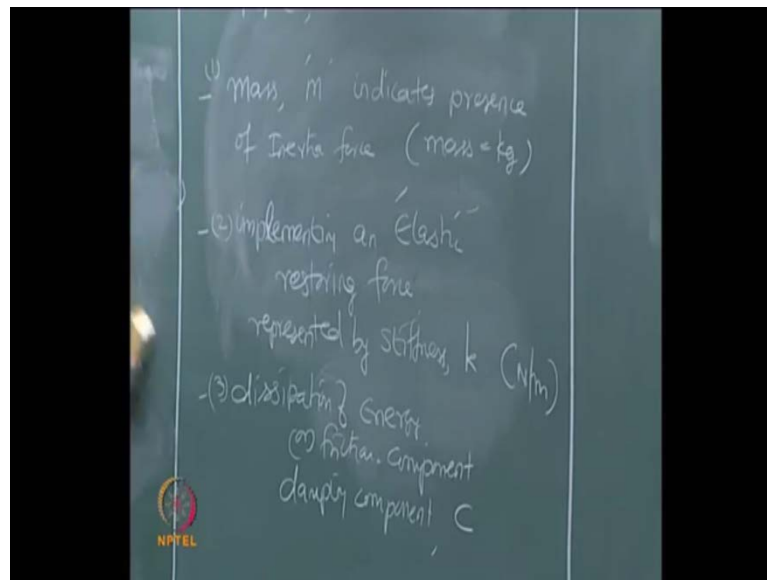 (1) mass, 'm' indicates presence
of Inertia force (mass = kg)
- (2) implementing an Elastic
restoring force
represented by stiffness, k (N/m)
- (3) dissipation of Energy
(or) friction component
damping component C
NPTEL